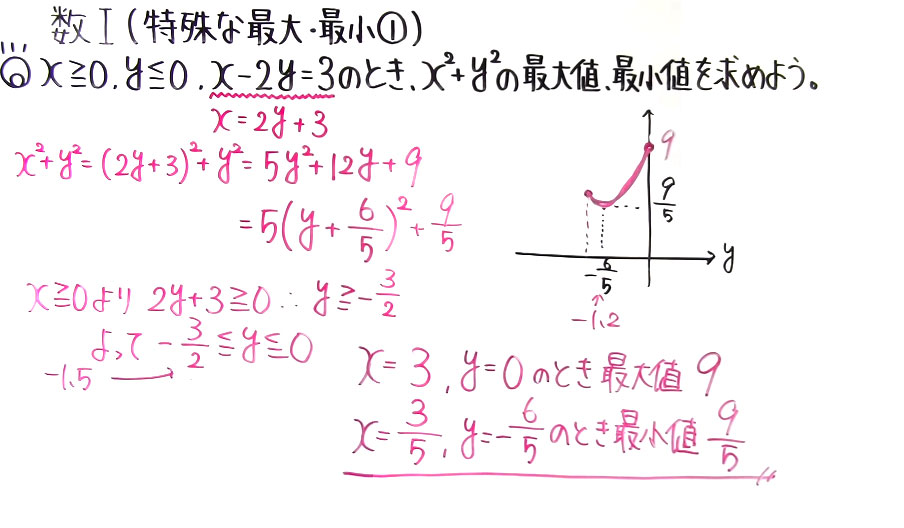 数Ⅰ(特殊な最大・最小①)
◎ x≧0, y≦0, x-2y=3のとき、x²+y²の最大値、最小値を求めよう。
x=2y+3
x²+y²=(2y+3)²+y²=5y²+12y+9
=5(y+6/5)²+9/5
x≧0より 2y+3≧0 ∴ y≧-3/2
よって -3/2≦y≦0
-1.5
9
9/5
y
-6/5
-1.2
x=3, y=0のとき最大値 9
x=3/5, y=-6/5のとき最小値 9/5